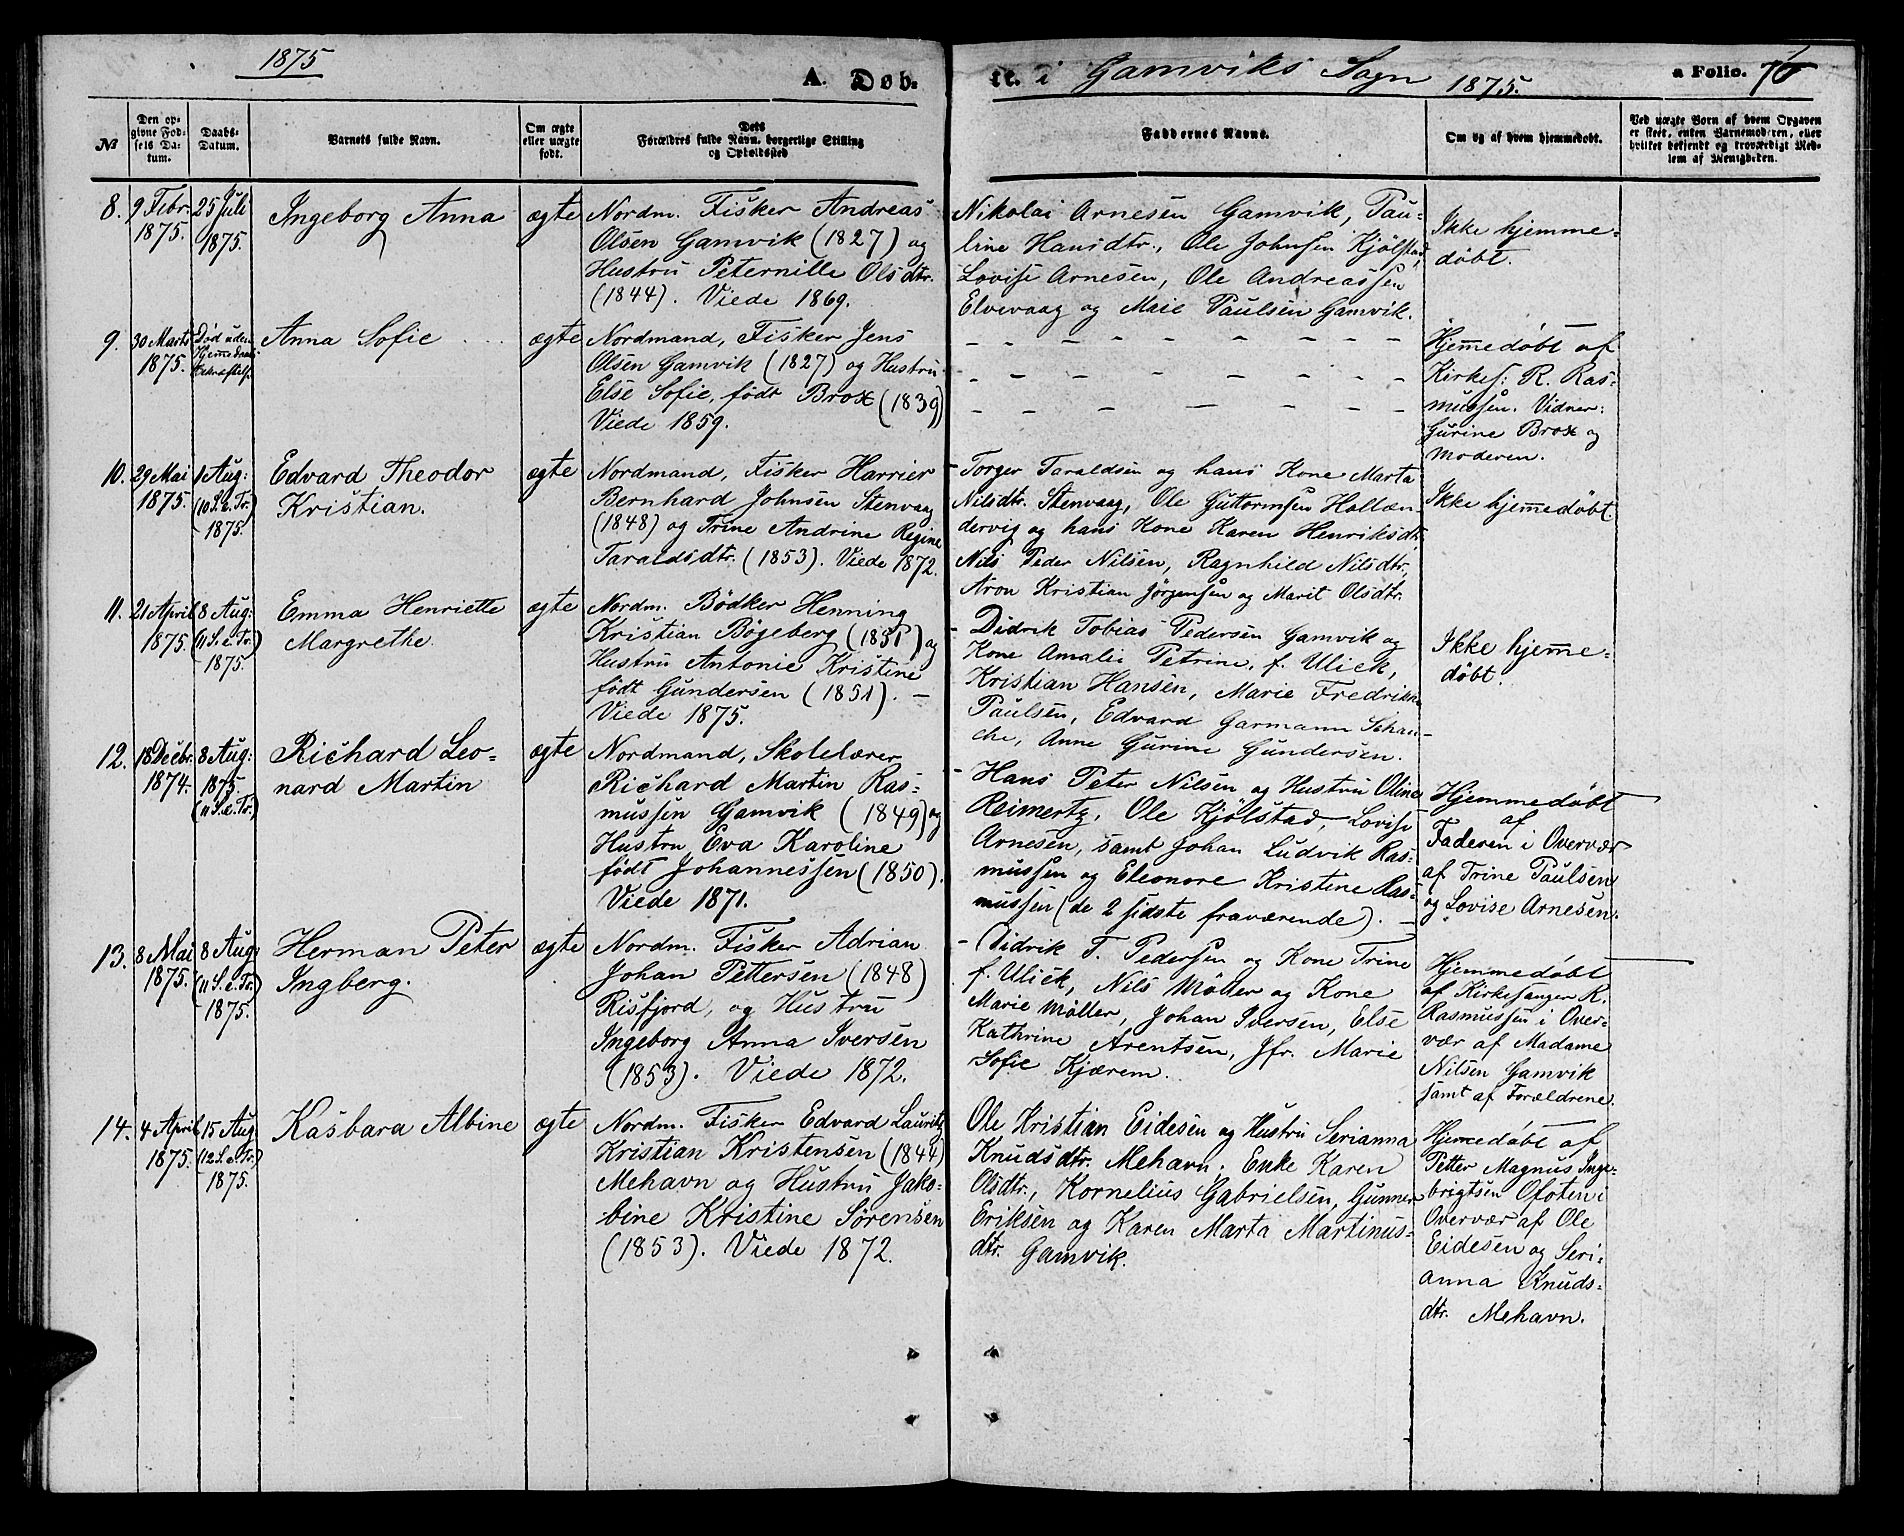 1875
A. Døb-
te. i Gamviks Sogn 1875.
a Folio. 76
№
Den op-
givne Fød-
sels Da-
tum.
Daabs-
Datum.
Barnets fulde Navn.
Om ægte
eller uægte
født.
Dets
Forældres fulde Navn, borgerlige Stilling
og Opholdssted
Faddernes Navne.
Om og af hvem hjemmedøbt.
Ved uægte Børn af hvem Opgaven
er skeet, enten Barnemoderen, eller
hvilket bekjendt og troværdigt Med-
lem af Menigheden.
8.
9 Febr.
1875.
25 Juli
1875.
Ingeborg Anna
ægte
Nordm. Fisker Andreas
Olsen Gamvik (1827) og
Hustru Peternille Olsdtr.
(1844). Viede 1869.
Nikolai Arnesen Gamvik, Pau-
line Hansdtr., Ole Johnsen Kjölstad,
Lovise Arnesen, Ole Andreassen
Elvevaag og Maie Paulsen Gamvik.
Ikke hjemme-
døbt.
9.
30 Marts
1875.
Død uden
Hjemmedaabs
Bekræftelse
Anna Sofie
ægte
Nordmand, Fisker Jens
Olsen Gamvik (1827) og Hustru
Else Sofie, født Brox (1839)
Viede 1859.
Hjemmedøbt af
Kirkes: R. Ras-
mussen. Vidner:
Gurine Brox og
Moderen.
10.
29 Mai
1875.
1 Aug:
(10 S.e.Tr.)
1875.
Edvard Theodor
Kristian.
ægte
Nordmand, Fisker Harrier
Bernhard Johnsen Stenvaag
(1848) og Trine Andrine Regine
Taraldsdtr. (1853). Viede 1872.
- Torger Taraldsen og hans Kone Marta
Nilsdtr. Stenvaag, Ole Guttormsen Hollæn-
dervig og hans Kone Karen Henriksdtr.
Nils Peder Nilsen, Ragnhild Nilsdtr.,
Aron Kristian Jörgensen og Marit Olsdtr.
Ikke hjemmedøbt.
11.
21 April
1875.
8 Aug:
(11 S.e.Tr.)
1875.
Emma Henriette
Margrethe.
ægte
Nordm. Bödker Henning
Kristian Bögeberg (1851) og
Hustru Antonie Kristine
født Gundersen (1851). -
Viede 1875.
- Didrik Tobias Pedersen Gamvik og
Kone Amalie Petrine, f. Ulick,
Kristian Hansen, Marie Fredrikke
Paulsen, Edvard Garmann Schan-
che, Anne Gurine Gundersen.
Ikke hjemme-
døbt.
12.
18 Decbr.
1874.
8 Aug:
1875.
(11 S.e.Tr.)
Richard Leo-
nard Martin
ægte
Nordmand, Skolelærer
Richard Martin Ras-
mussen Gamvik (1849) og
Hustru Eva Karoline
født Johannessen (1850).
Viede 1871.
- Hans Peter Nilsen og Hustru Oline
Reimertz, Ole Kjölstad, Lovise
Arnesen, samt Johan Ludvik Ras-
mussen og Eleonore Kristine Ras-
mussen (de 2 sidste fraværende). -
Hjemmedøbt
af
Faderen i Overvær
af Trine Paulsen
og Lovise Arnesen.
13.
8 Mai
1875.
8 Aug:
(11 S.e.Tr.)
1875.
Herman Peter
Ingberg.
ægte
Nordm. Fisker Adrian
Johan Pettersen (1848)
Risfjord, og Hustru
Ingeborg Anna Iversen
(1853). Viede 1872.
- Didrik T. Pedersen og Kone Trine
f. Ulick, Nils Möller og Kone
Marie Möller, Johan Iversen, Else
Kathrine Arentsen, Jfr. Marie
Sofie Kjærem.
Hjemmedøbt
af Kirkesanger R.
Rasmussen i Over-
vær af Madame
Nilsen Gamvik
samt af Forældrene.
14.
4 April
1875.
15 Aug.
(12 S.e.Tr.)
1875.
Kasbara Albine
ægte
Nordm. Fisker Edvard Lauritz
Kristian Kristensen (1844)
Mehavn og Hustru Jako-
bine Kristine Sörensen
(1853). Viede 1872.
Ole Kristian Eidesen og Hustru Serianna
Knudsdtr. Mehavn; Enke Karen
Olsdtr., Kornelius Gabrielsen, Gunner
Eriksen og Karen Marta Martinus-
dtr. Gamvik.
Hjemmedøbt af
Petter Magnus Inge-
brigtsen Ofoten i
Overvær af Ole
Eidesen og Seri-
anna Knuds-
dtr. Mehavn.